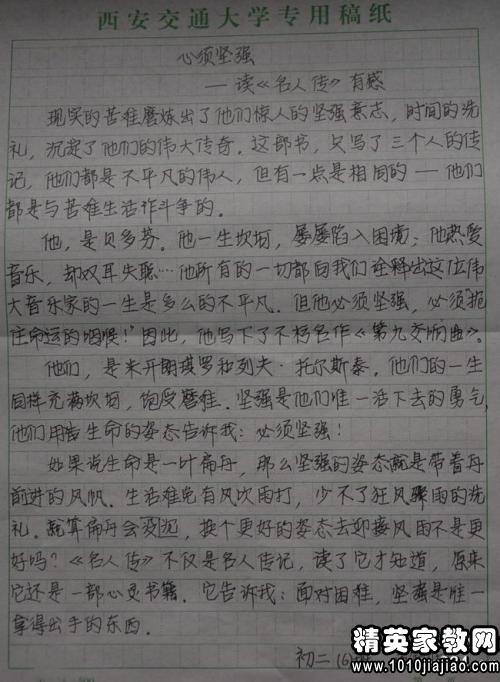 西安交通大学专用稿纸
心须坚强
——读《名人传》有感
现实的苦难磨炼出了他们惊人的坚强意志，时间的洗
礼，沉淀了他们的伟大传奇。这部书，只写了三个人的传
记，他们都是不平凡的伟人，但有一点是相同的——他们
都是与苦难生活作斗争的。
他，是贝多芬。他一生坎坷，屡屡陷入困境；他热爱
音乐，却双耳失聪…他所有的一切都向我们诠释出这位伟
大音乐家的一生是多么的不平凡。但他必须坚强，必须“扼
住命运的咽喉！”因此，他写下了不朽名作《第九交响曲》。
他们，是米开朗琪罗和列夫·托尔斯泰。他们的一生
同样充满坎坷，饱受磨难。坚强是他们唯一活下去的勇气，
他们用生命的姿态告诉我：必须坚强！
如果说生命是一叶扁舟，那么坚强的姿态就是带着舟
前进的风帆。生活难免有风吹雨打，少不了狂风骤雨的洗
礼。就算扁舟会没迹，换个更好的姿态去迎接风雨不是更
好吗？《名人传》不仅是名人传记，读了它才知道，原来
它还是一部心灵书籍。它告诉我：面对困难，坚强是唯一
拿得出手的东西。
初二（6）
精英家教网
www.1010jiajiao.com